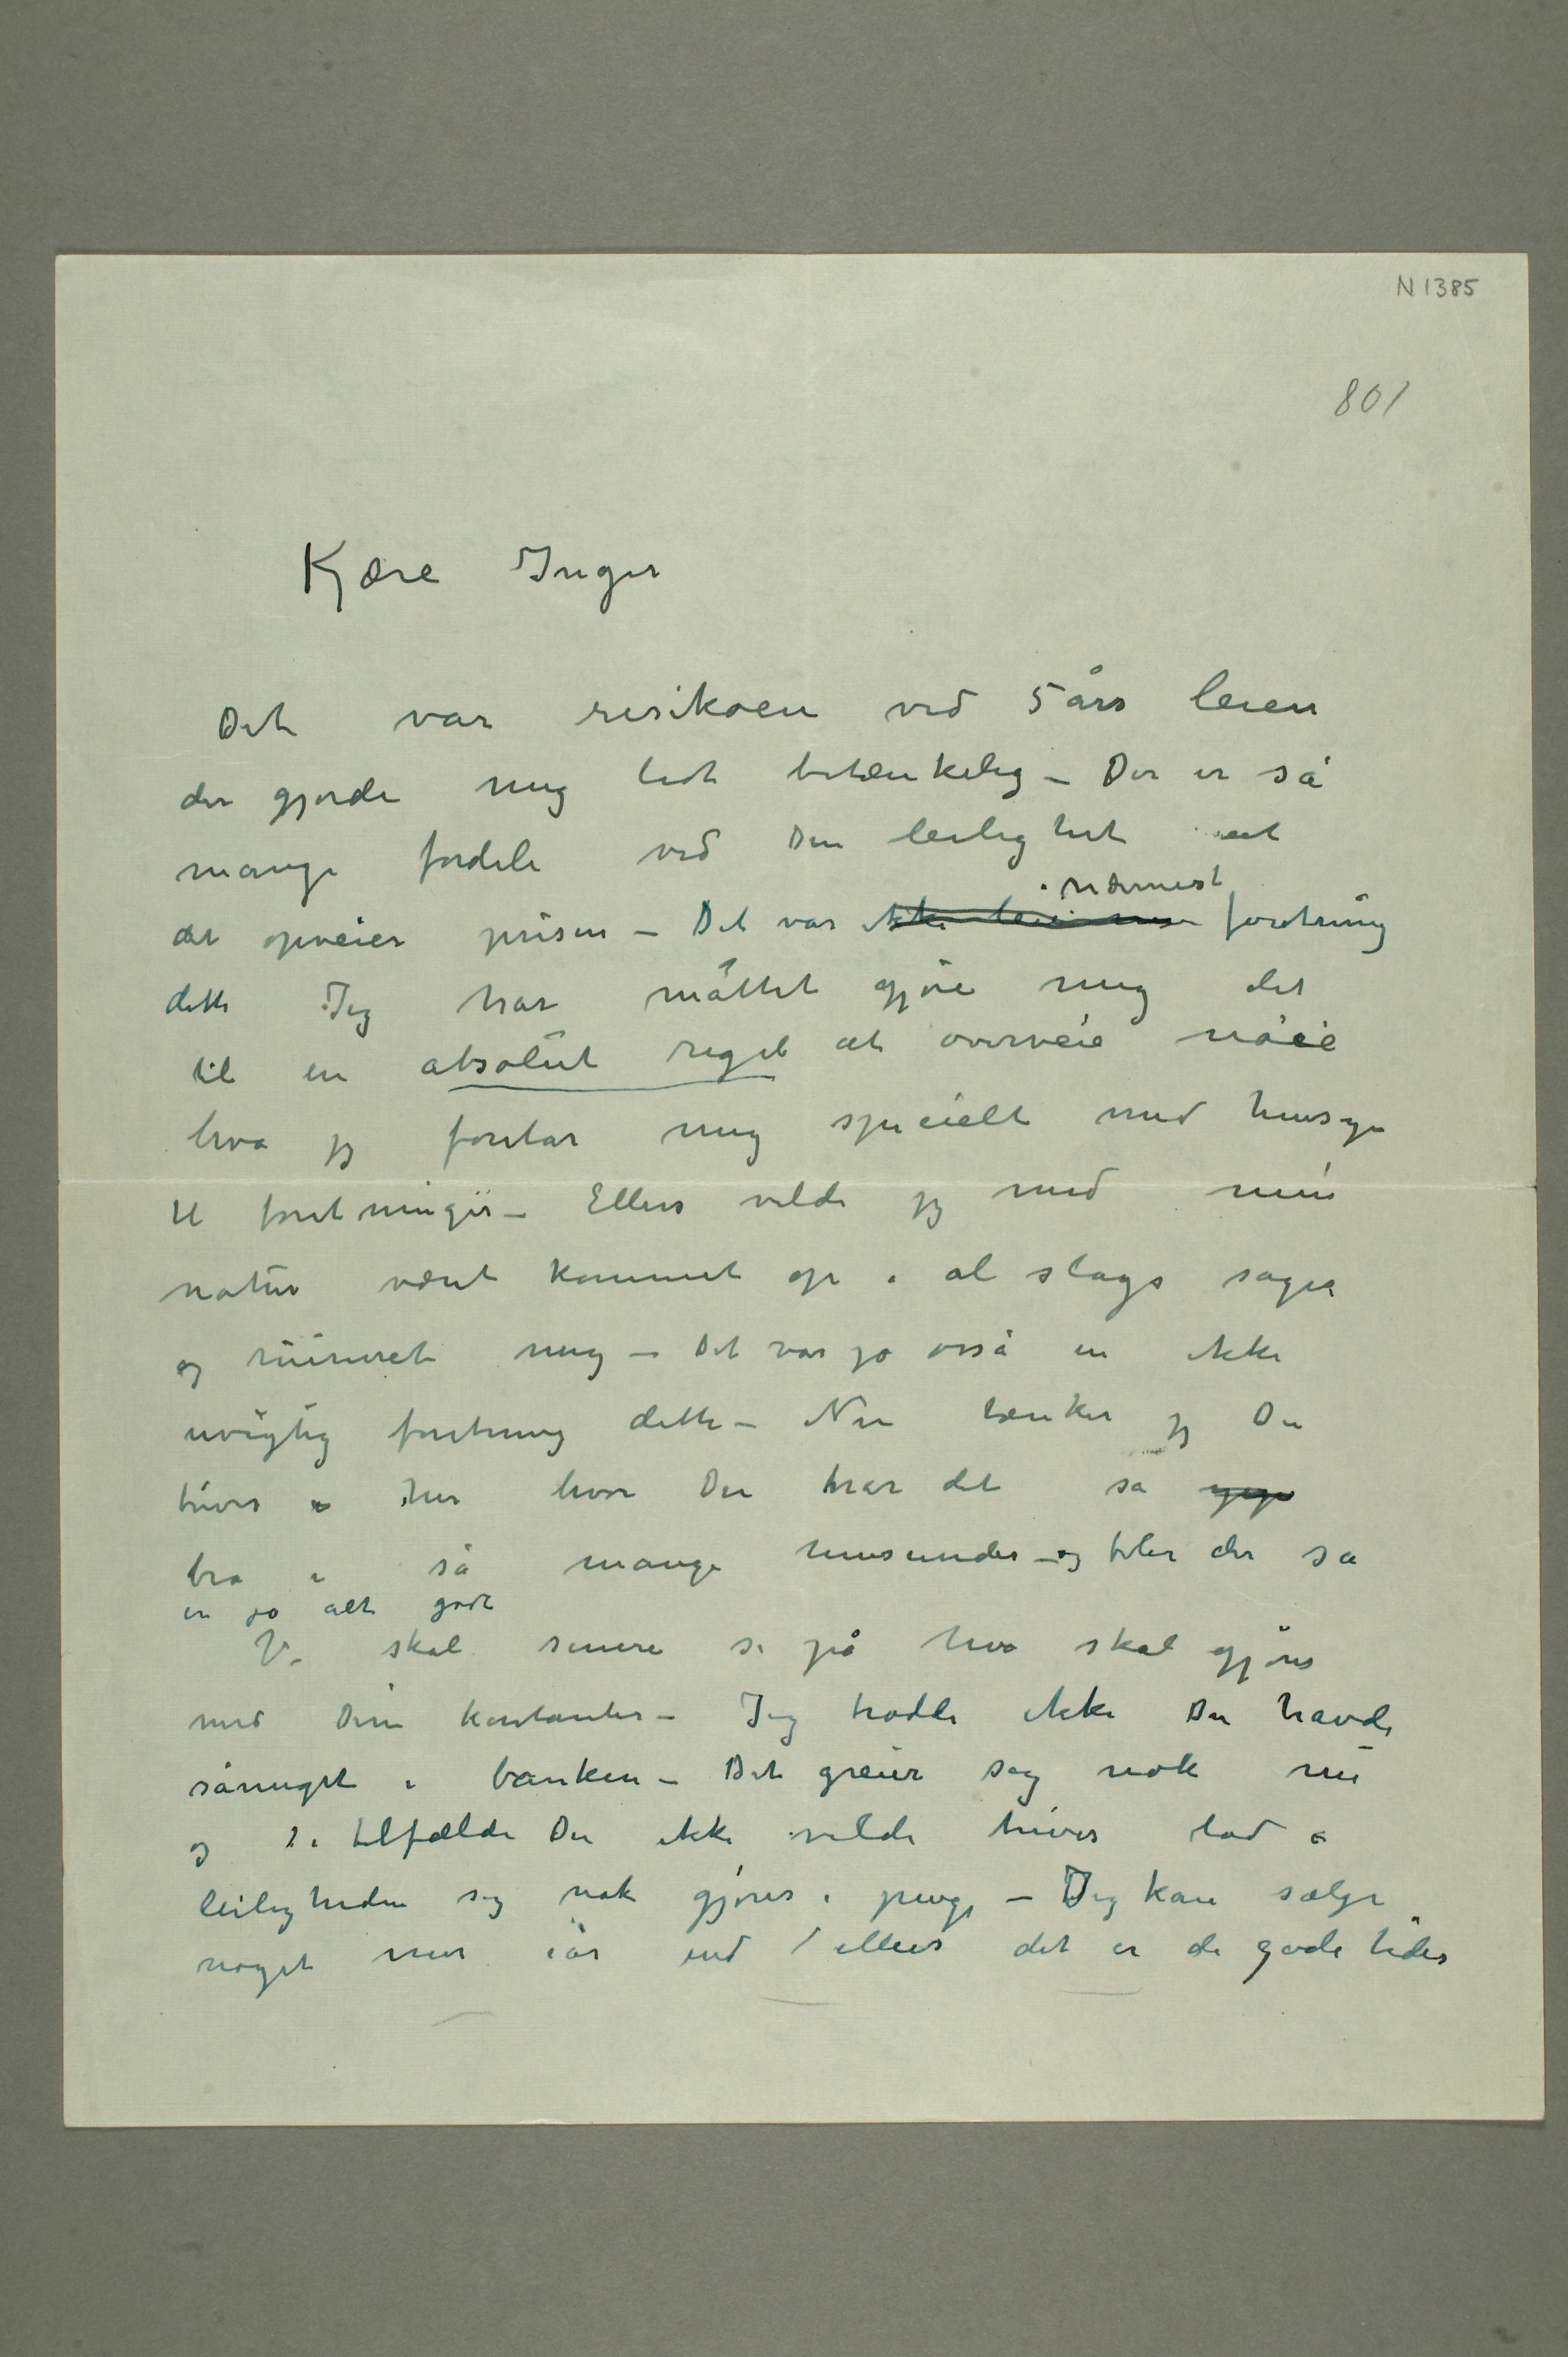 N 1385
801
Kjære Inger
Det var resikoen ved 5 års leien
der gjorde mig lidt betænkelig – Der er så
mange fordele ved Din leilighet at
det opveier prisen – Det var ikke nærmest foretning
dette Jeg har måttet gjøre mig det
til en absolut regel at overveie nøie
hva jeg foretar mig specielt med hensyn
til foretninger – Ellers vilde jeg med min
natur været kommet op i al slags sager
og ruineret mig – Det var jo osså en ikke
uvigtig foretning dette – Nu tænker jeg Du
trives her hvor Du har det så
bra i så mange henseender – og blir der så
er jo alt godt
Vi skal senere se på hva skal gjøres
med Dine kontanter – Jeg trodde ikke Du havde
såmeget i banken – Det greier seg nok nu
og i tilfælde Du ikke vilde trives lod
leiligheden sig nok gjøres i penge – Jeg kan sælge
noget mer iår end ellers det er de gode tider